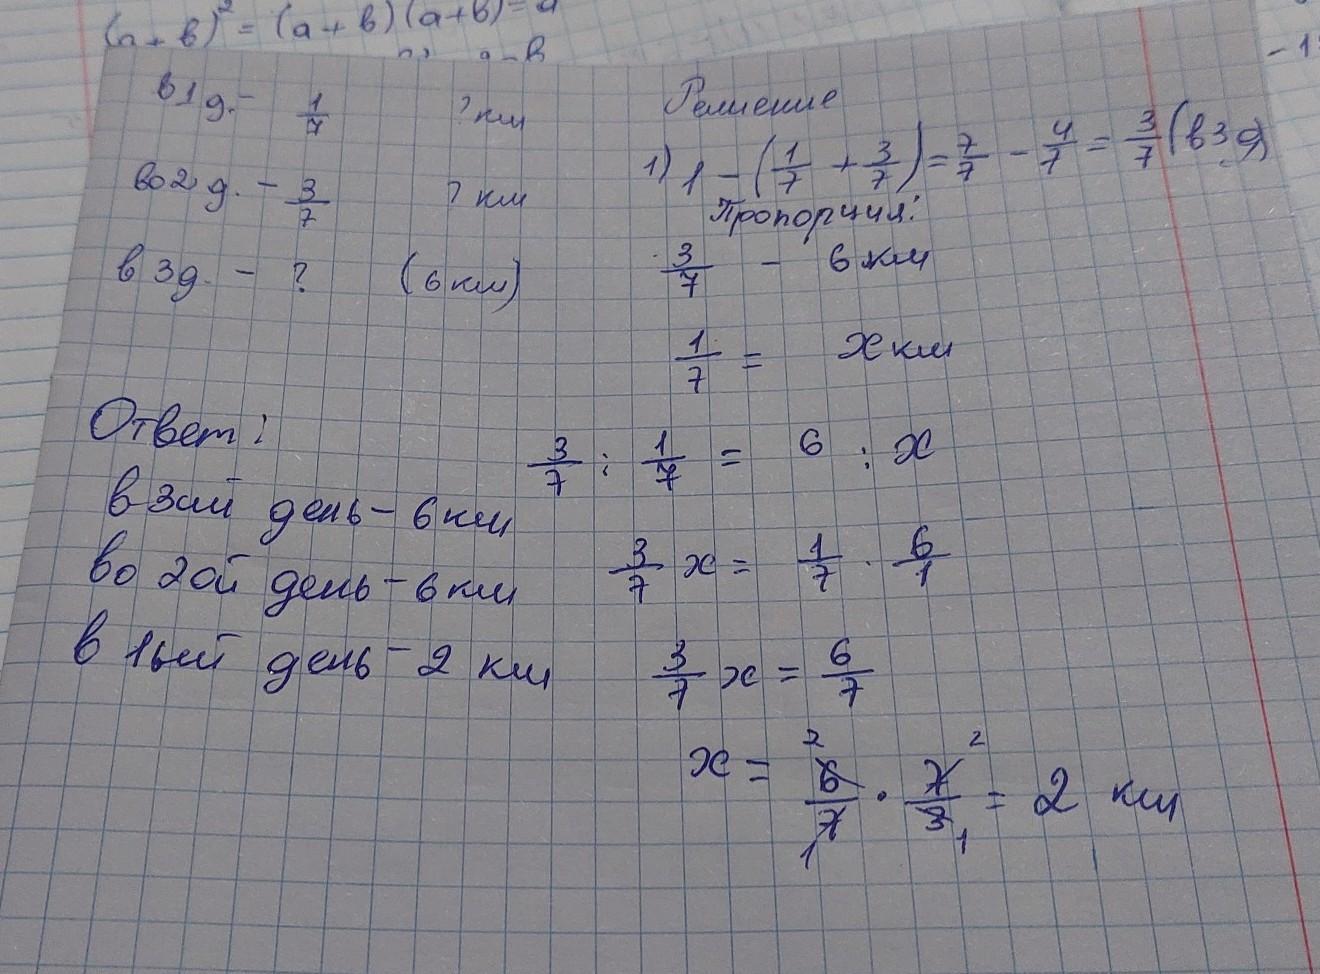 (a + в)² = (a + в) (a + в) = a
в 1 д. - 1/7 ? км
во 2 д. - 3/7 ? км
в 3 д. - ? (6 км)
Решение
1) 1 - (1/7 + 3/7) = 7/7 - 4/7 = 3/7 (в 3 д)
Пропорция:
3/7 - 6 км
1/7 = x км
3/7 : 1/7 = 6 : x
3/7 x = 1/7 · 6/1
3/7 x = 6/7
x = 6/7 · 7/3 = 2 км
2 2
1 1
Ответ:
в 3ий день - 6 км
во 2ой день - 6 км
в 1ый день - 2 км